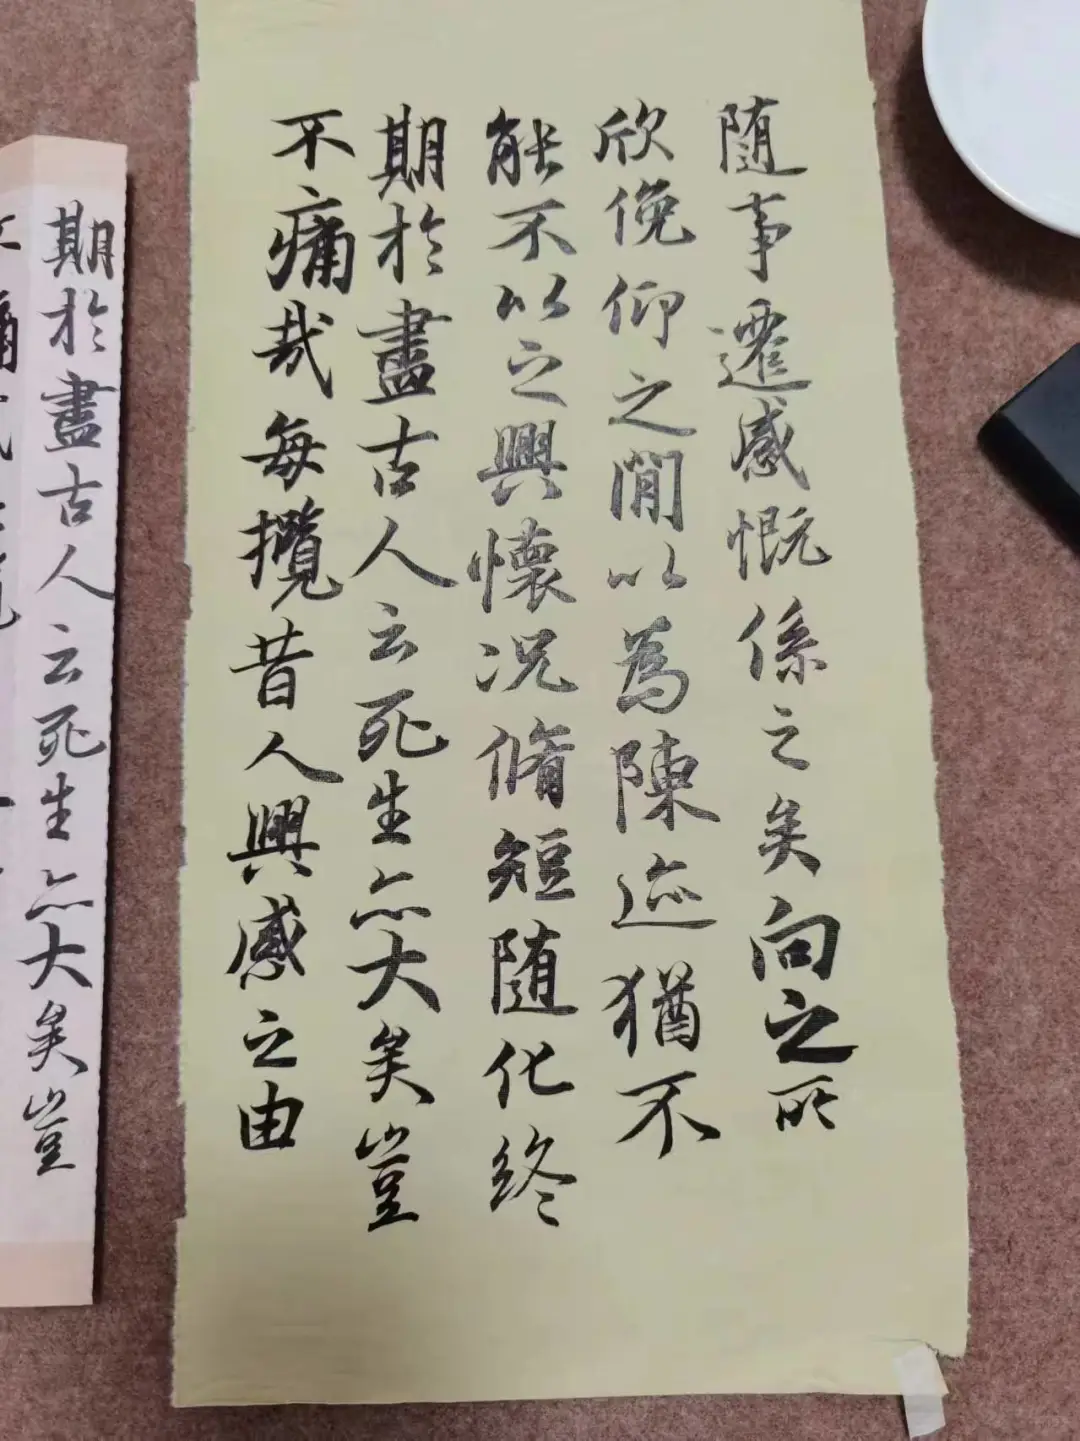 随事遷感慨係之矣向之所
欣俛仰之閒以為陳迹猶不
能不以之興懷况脩短随化終
期於盡古人云死生亦大矣豈
不痛哉每攬昔人興感之由
期於盡古人云死生亦大矣豈